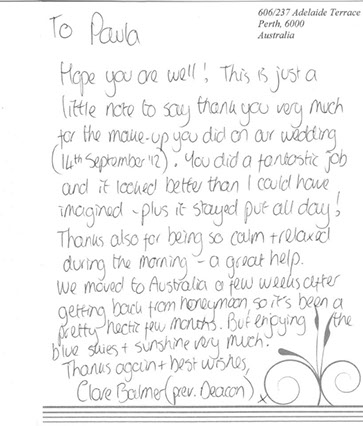 606/237 Adelaide Terrace
Perth, 6000
Australia
To Paula
Hope you are well! This is just a
little note to say thank you very much
for the make-up you did on our wedding
(14th September '12). You did a fantastic job
and it looked better than I could have
imagined - plus it stayed put all day!
Thanks also for being so calm + relaxed
during the morning - a great help.
We moved to Australia a few weeks after
getting back from honeymoon so it's been a
pretty hectic few months. But enjoying the
blue skies + sunshine very much!
Thanks again + best wishes,
Clare Balmer (prev. Deacon) x